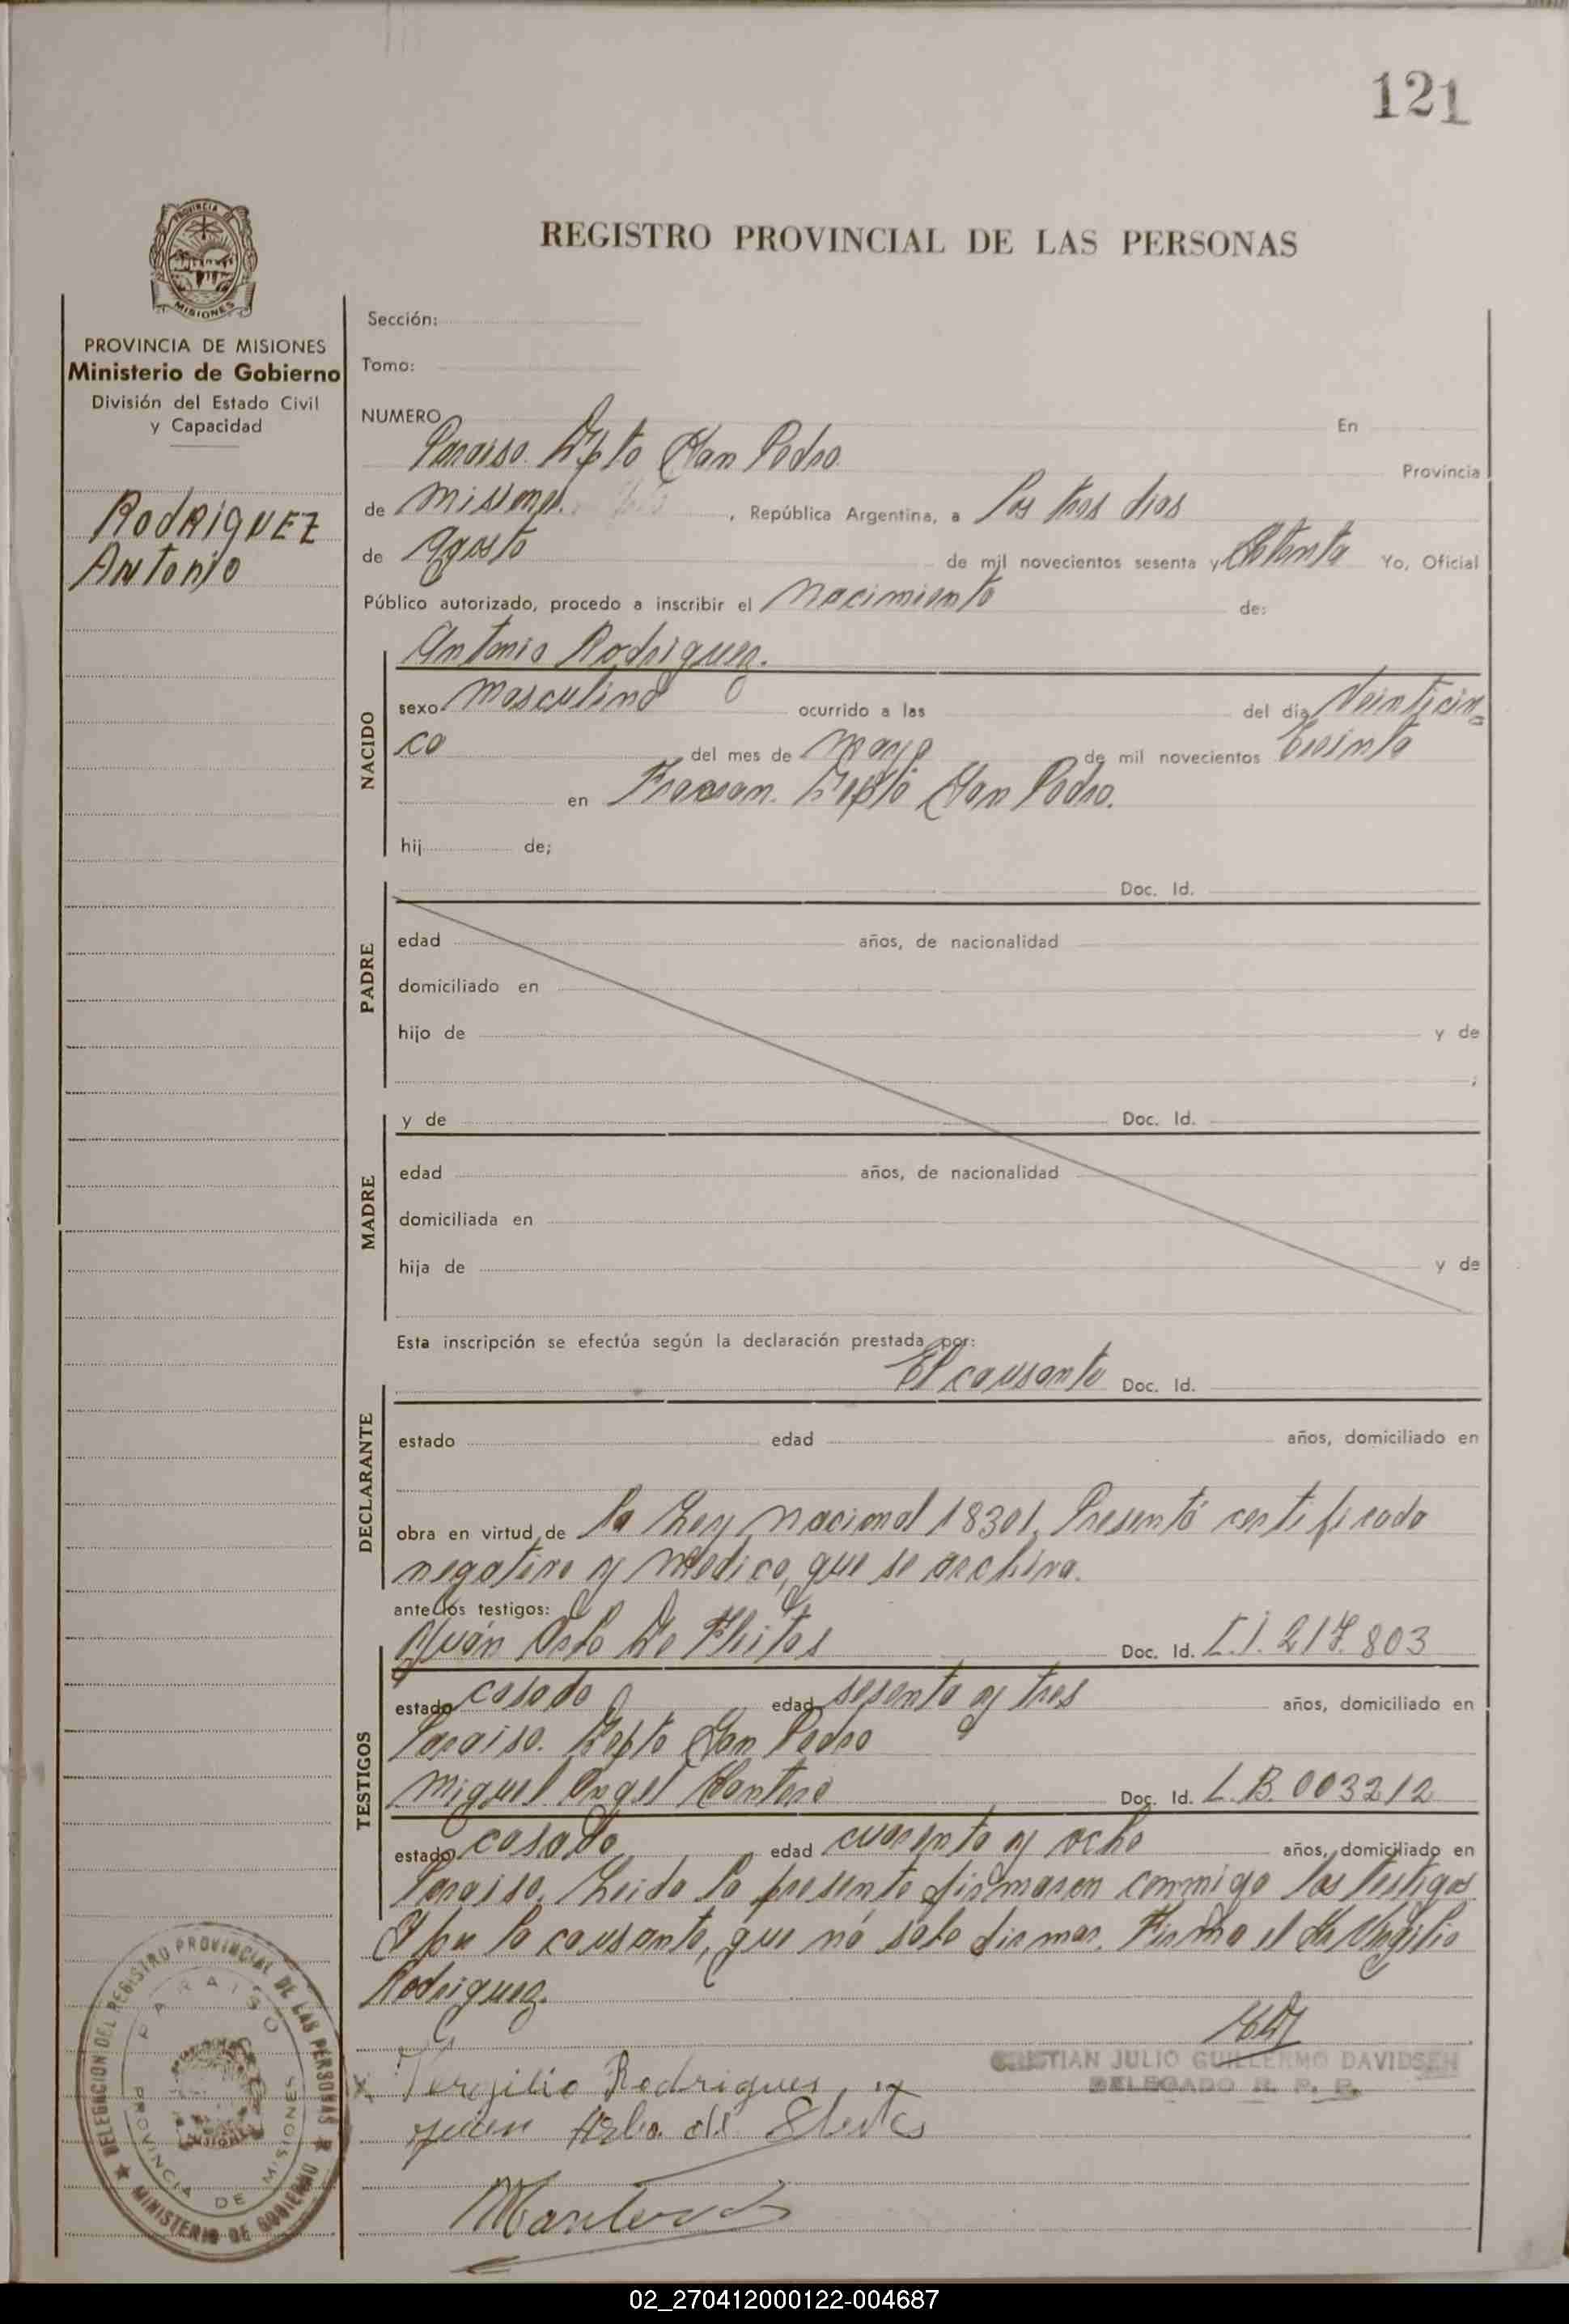 121
PROVINCIA DE
MISIONES
REGISTRO PROVINCIAL DE LAS PERSONAS
PROVINCIA DE MISIONES
Ministerio de Gobierno
División del Estado Civil
y Capacidad
RodRIgUEZ
Antonio
Sección:
Tomo:
NUMERO En
Paraiso. Dpto San Pedro Provincia
de Misiones. , República Argentina, a los tres dias
de Agosto de mil novecientos sesenta y Setenta Yo, Oficial
Público autorizado, procedo a inscribir el Nacimiento de:
NACIDO
Antonio Rodriguez.
sexo Masculino ocurrido a las del día Veinticin
co del mes de Mayo de mil novecientos treinta
en Fracran. Depto San Pedro.
hij de;
PADRE
Doc. Id.
edad años, de nacionalidad
domiciliado en
hijo de y de
;
MADRE
y de Doc. Id.
edad años, de nacionalidad
domiciliada en
hija de y de
Esta inscripción se efectúa según la declaración prestada por:
DECLARANTE
El causante Doc. Id.
estado edad años, domiciliado en
obra en virtud de la Ley Nacional 18301. Presentó certificado
negativo y Medico, que se archiva.
ante los testigos:
TESTIGOS
Juán De Doc. Id. 803
estado casado edad sesenta y tres años, domiciliado en
Paraiso. Depto San Pedro
Miguel Angel Doc. Id. L.B. 003212
estado casado edad cuarenta y ocho años, domiciliado en
Paraiso. Leida la presente firmaron conmigo los testigos
y por la causante, que nó sabe firmar. Firma el Sr Vergilio
Rodriguez.
CRISTIAN JULIO GUILLERMO DAVIDSEN
DELEGADO R. P. P.
x Vergilio Rodrigues x
de
DELEGACION DEL REGISTRO PROVINCIAL DE LAS PERSONAS
MINISTERIO DE GOBIERNO
PARAISO
PROVINCIA DE MISIONES
02_270412000122-004687